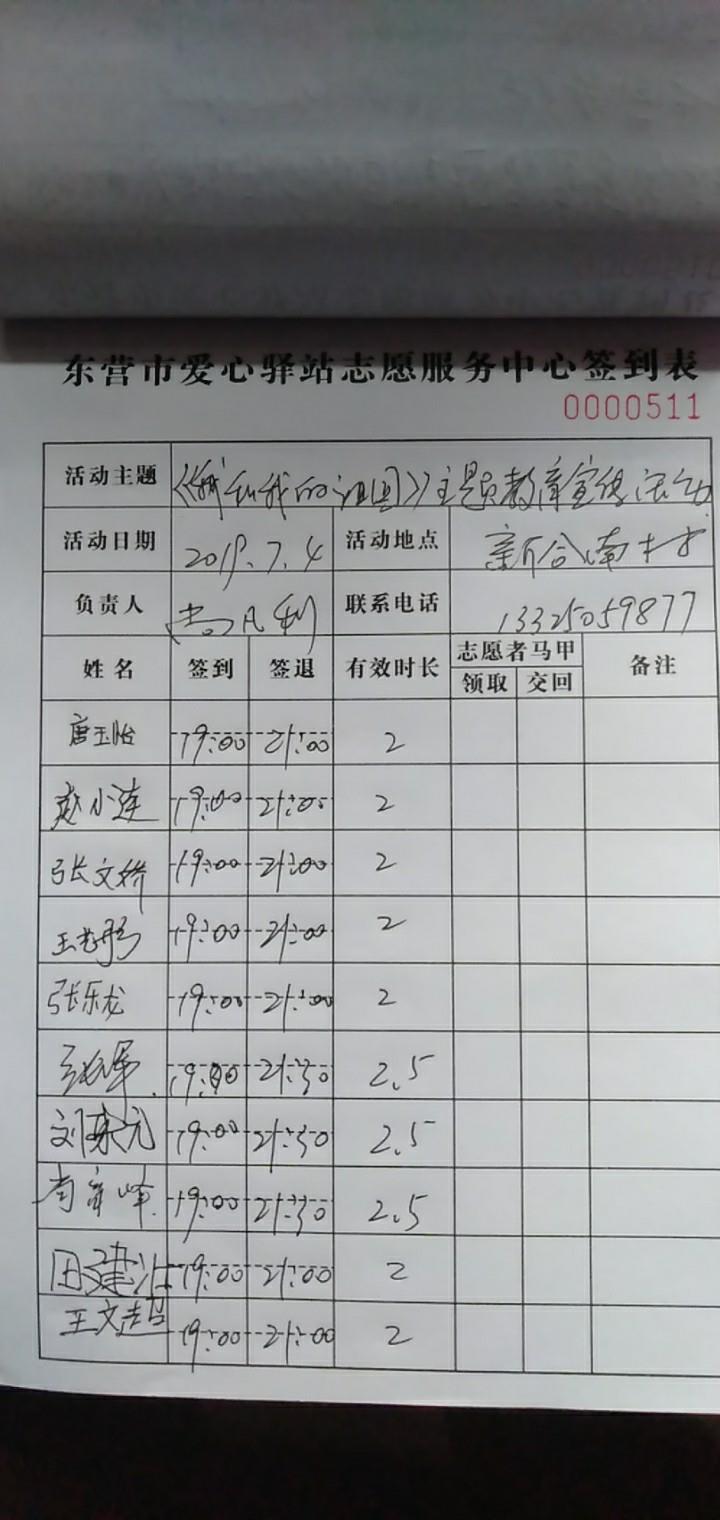 东营市爱心驿站志愿服务中心签到表
0000511
活动主题 《我和我的祖国》主题教育宣传活动
活动日期 2019.7.4 活动地点
负责人 尚凡利 联系电话 13325059877
姓名 签到 签退 有效时长 志愿者马甲 备注
领取 交回
唐玉怡 19:00 21:00 2
赵小莲 19:00 21:00 2
张文娇 19:00 21:00 2
19:00 21:00 2
张乐龙 19:00 21:00 2
19:00 21:30 2.5
刘东元 19:00 21:30 2.5
19:00 21:30 2.5
19:00 21:00 2
王文超 19:00 21:00 2